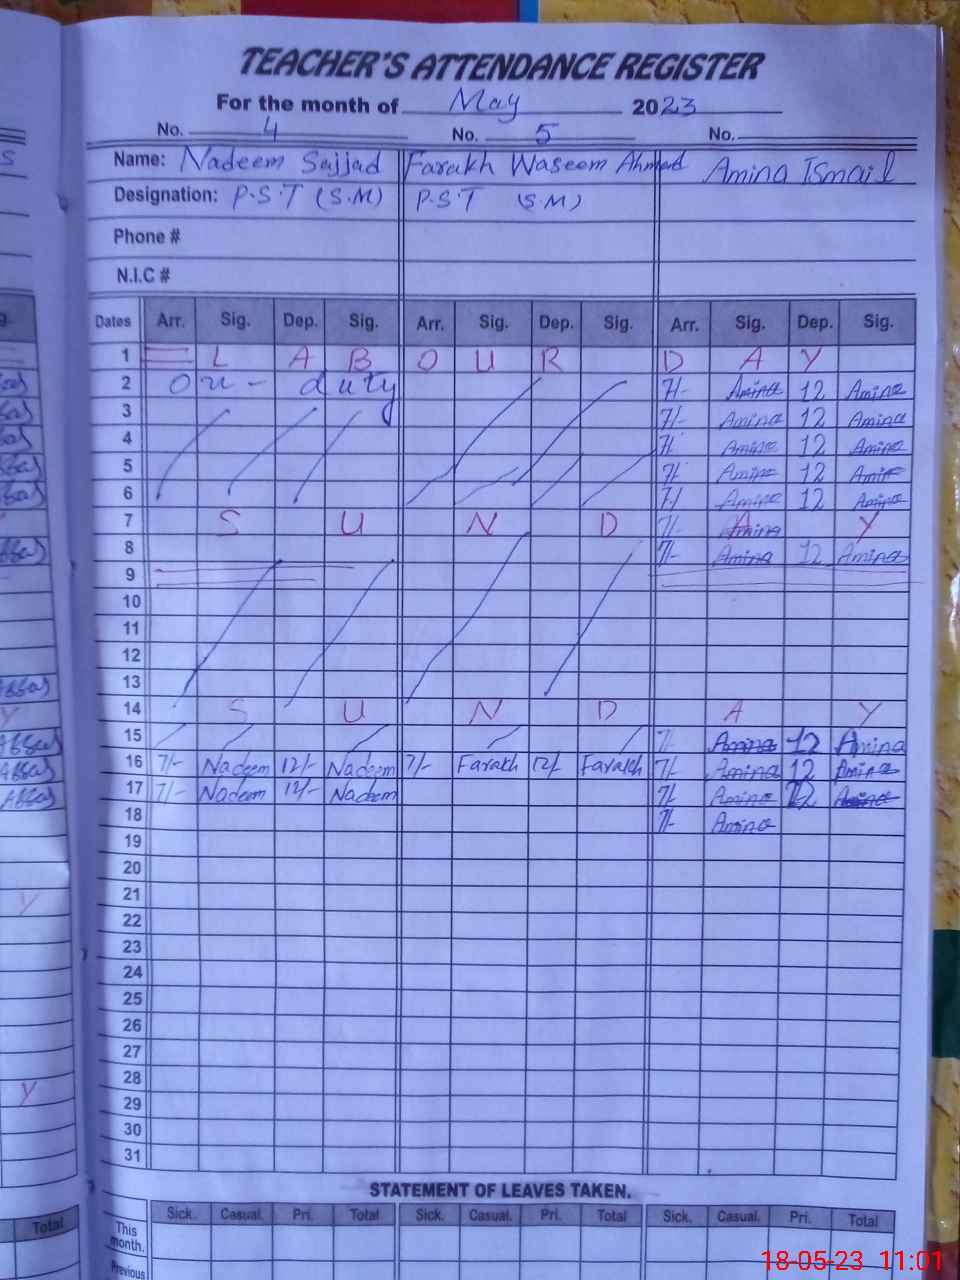 TEACHER'S ATTENDANCE REGISTER
For the month of May 2023
No. 4 No. 5 No.
Name: Nadeem Sajjad Farakh Waseem Ahmed Amina Ismail
Designation: P.S.T (S.M) P.S.T (S.M)
Phone #
N.I.C #
Dates Arr. Sig. Dep. Sig. Arr. Sig. Dep. Sig. Arr. Sig. Dep. Sig.
1 L A B O U R D A Y
2 On - duty 7/- Amina 12 Amina
3 7/- Amina 12 Amina
4 7/- Amina 12 Amina
5 7/- Amina 12 Amina
6 7/- Amina 12 Amina
7 S U N D A Y 7/- Amina
8 7/- Amina 12 Amina
9
10
11
12
13
14 S U N D A Y
15 7/- Amina 12 Amina
16 7/- Nadeem 12/- Nadeem 7/- Farakh 12/- Farakh 7/- Amina 12 Amina
17 7/- Nadeem 12/- Nadeem 7/- Amina 12 Amina
18 7/- Amina
19
20
21
22
23
24
25
26
27
28
29
30
31
STATEMENT OF LEAVES TAKEN.
Sick. Casual. Pri. Total Sick. Casual. Pri. Total Sick. Casual. Pri. Total
This month.
Previous
Total
18-05-23 11:01